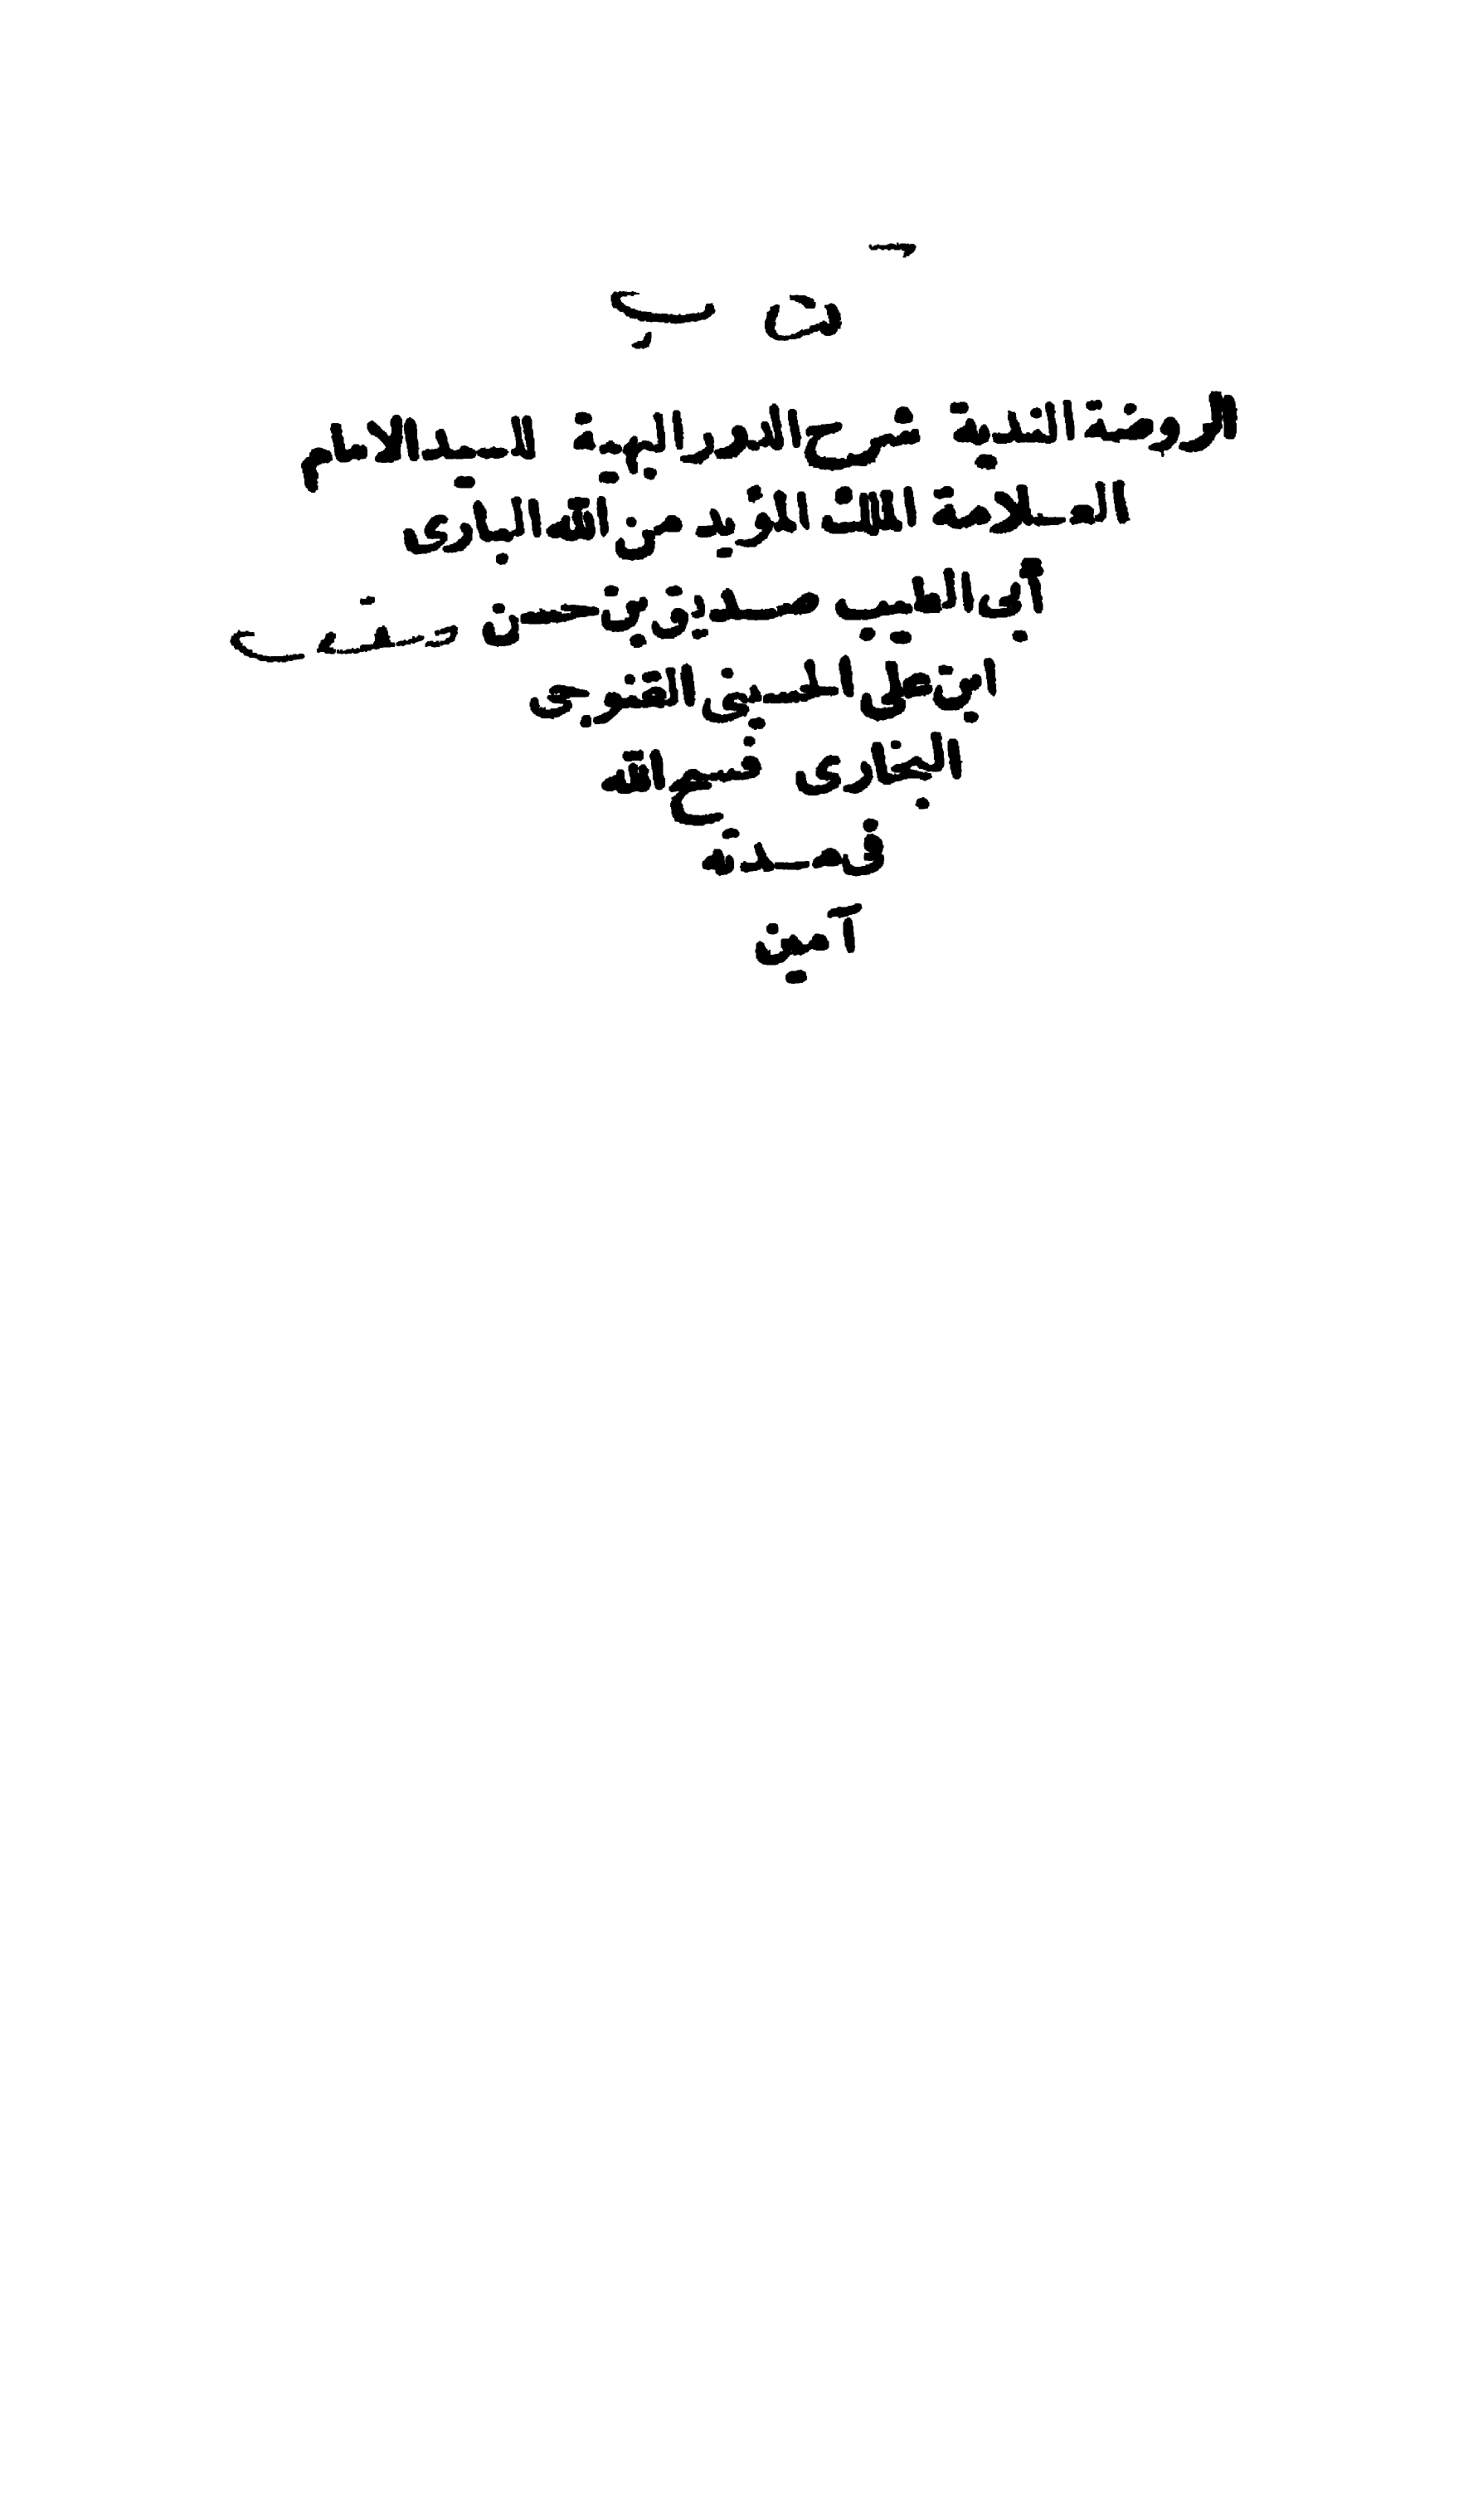 كتاب
الروضة الندية شرح الدرر البهية للسيد الامام
العلامة الملك المؤيد من الله البارى
أبى الطيب صديق بن حسن
ابن على الحسينى القنوجى
البخارى فسح الله
فى مدته
آمين